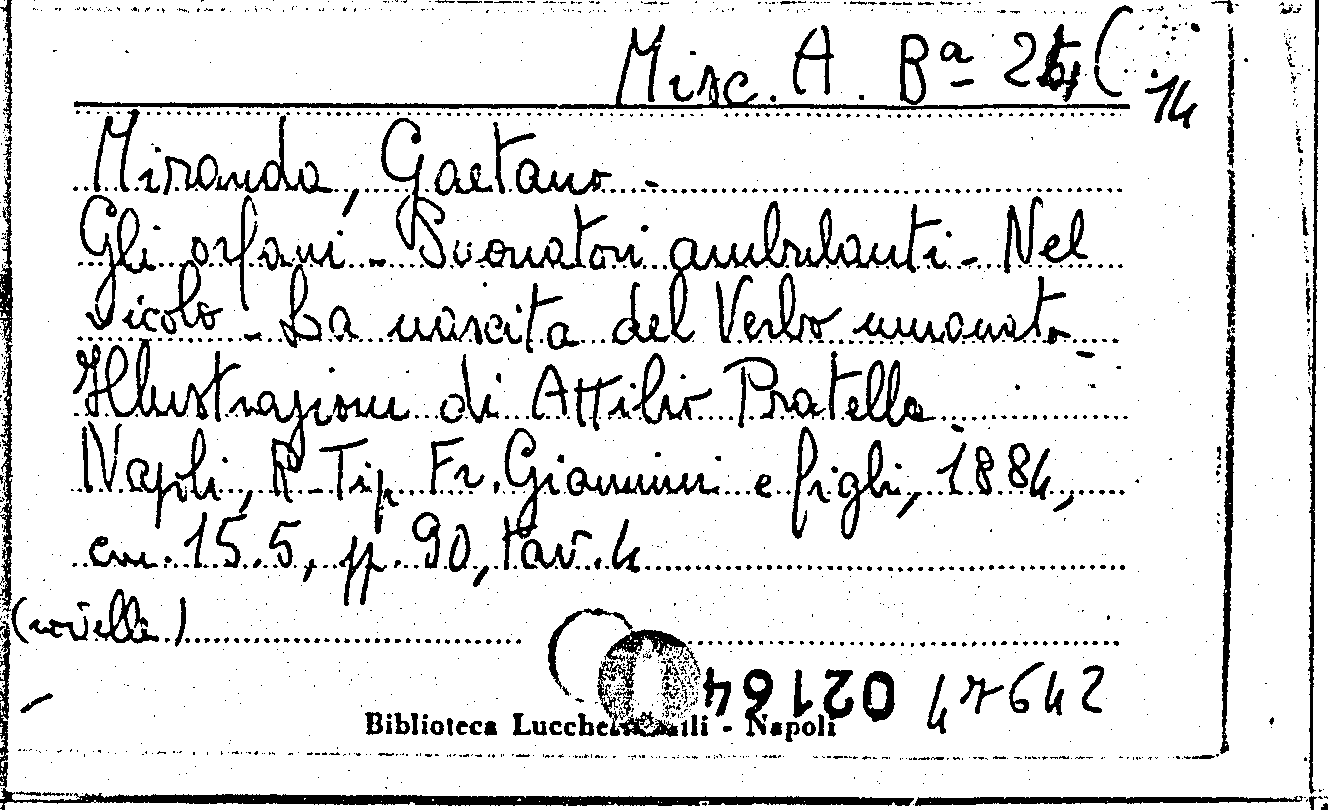 Misc. A. Bª 24(14
Miranda, Gaetano -
Gli orfani - Suonatori ambulanti - Nel
vicolo - La nascita del Verbo umanato -
Illustrazioni di Attilio Pratella.
Napoli, R. Tip. Fr. Giannini e figli, 1884,
cm. 15.5, pp. 90, tav. 4
(novelle)
02164 47642
Biblioteca - Napoli